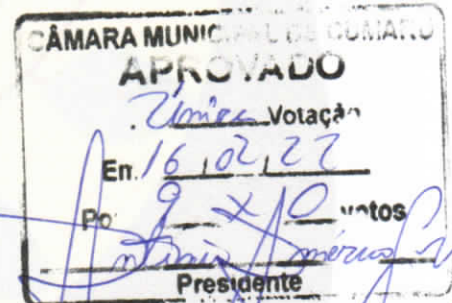 CÂMARA MUNICIPAL DE CUMARU
APROVADO
Única Votação
Em 16 / 02 / 22
Por 9 X 0 votos
Antonio Américo
Presidente